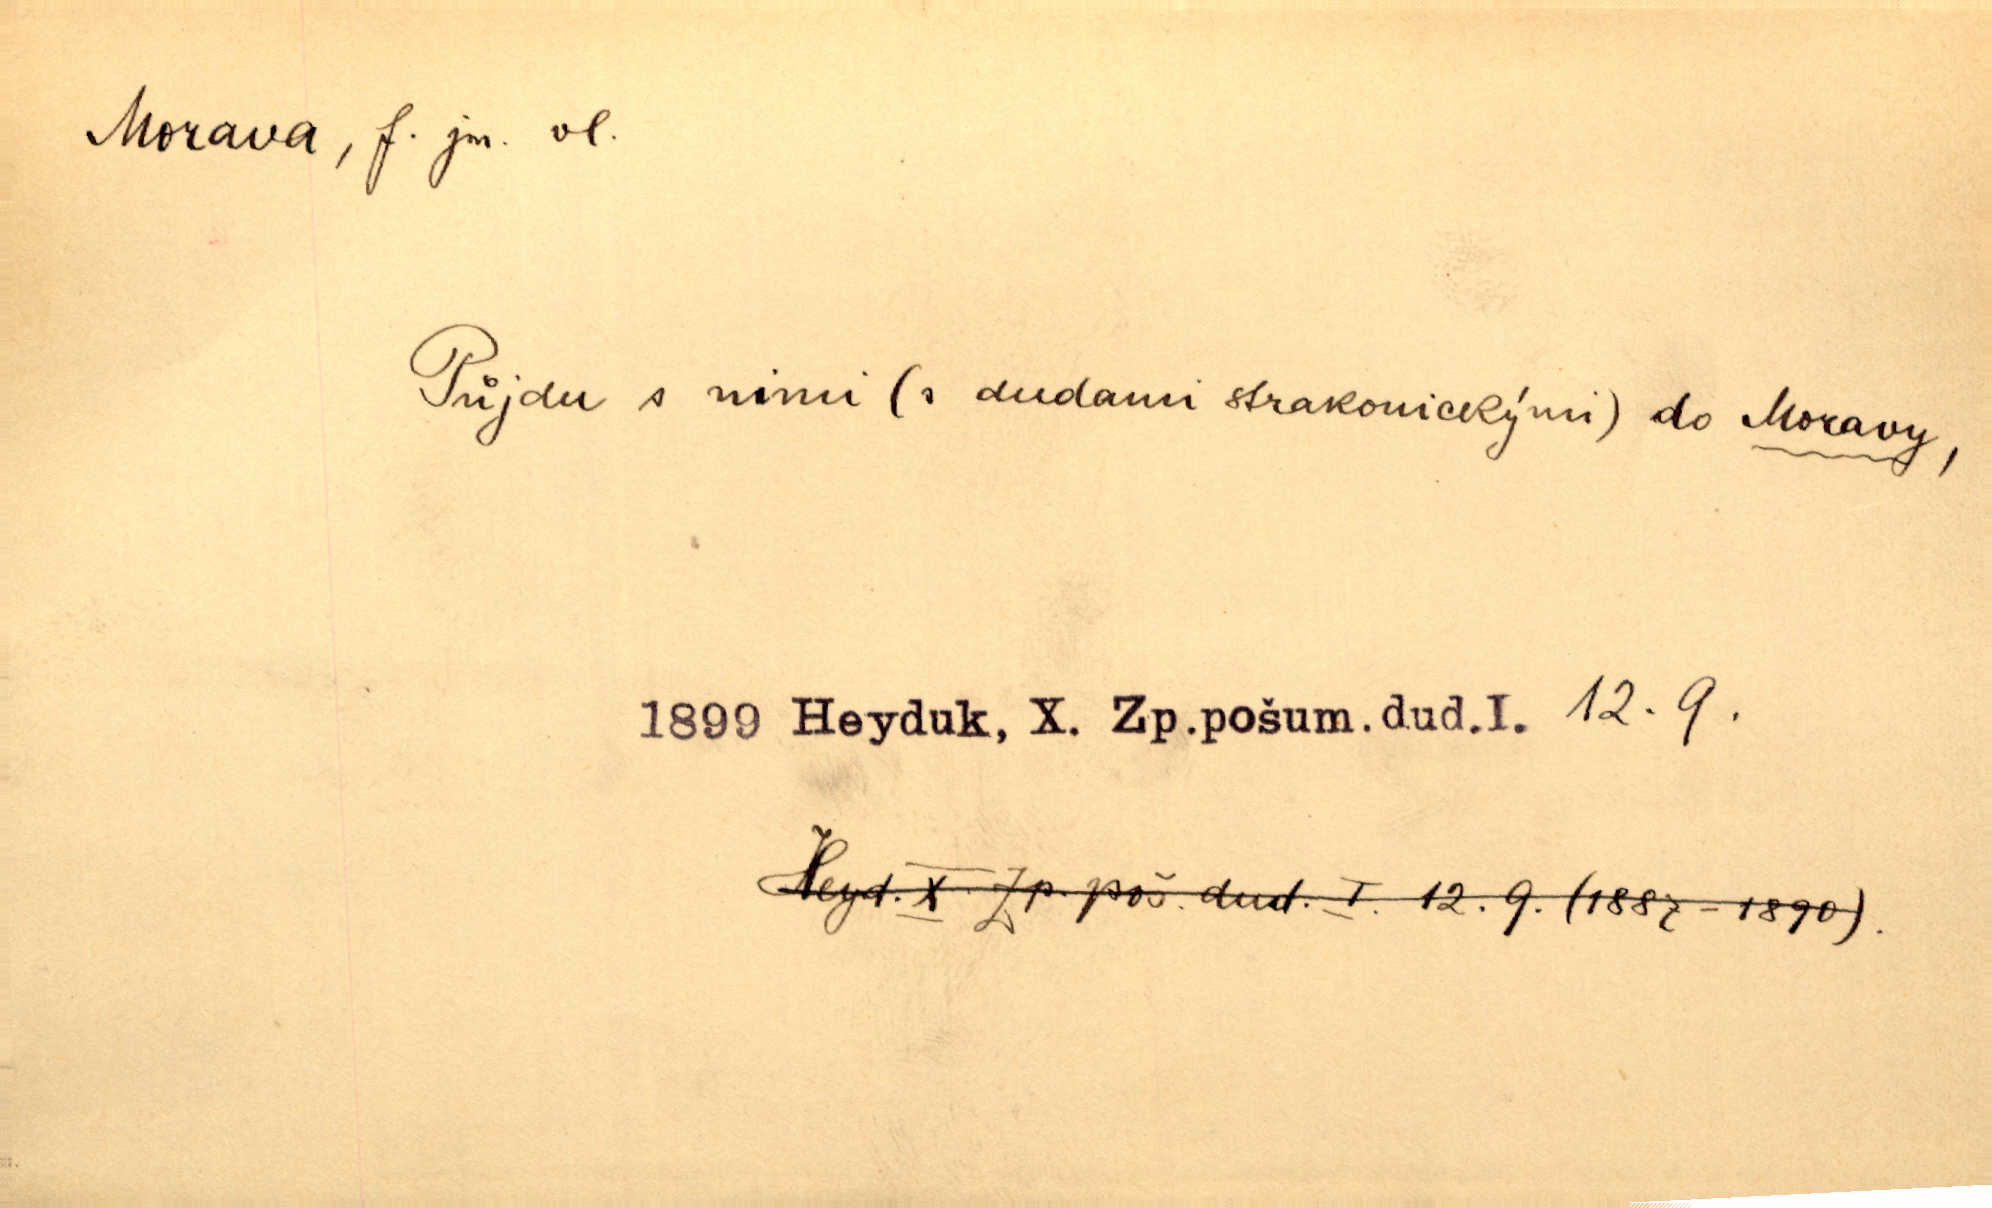 Morava, f. jm. vl.
Půjdu s nimi (s dudami strakonickými) do Moravy,
1899 Heyduk, X. Zp.pošum.dud.I. 12. 9.
Heyd. X. Zp. poš. dud. I. 12. 9. (1887 - 1890).